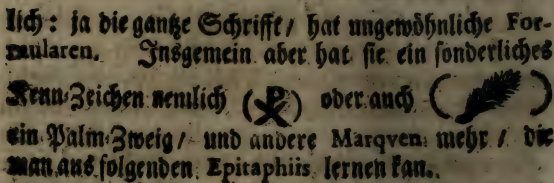 lich: ja die gantze Schrifft / hat ungewöhnliche For-
mularen. Insgemein aber hat sie ein sonderliches
Kenn-Zeichen nemlich (☧) oder auch ( )
ein Palm-Zweig / und andere Marqven mehr / die
man aus folgenden Epitaphiis lernen kan.